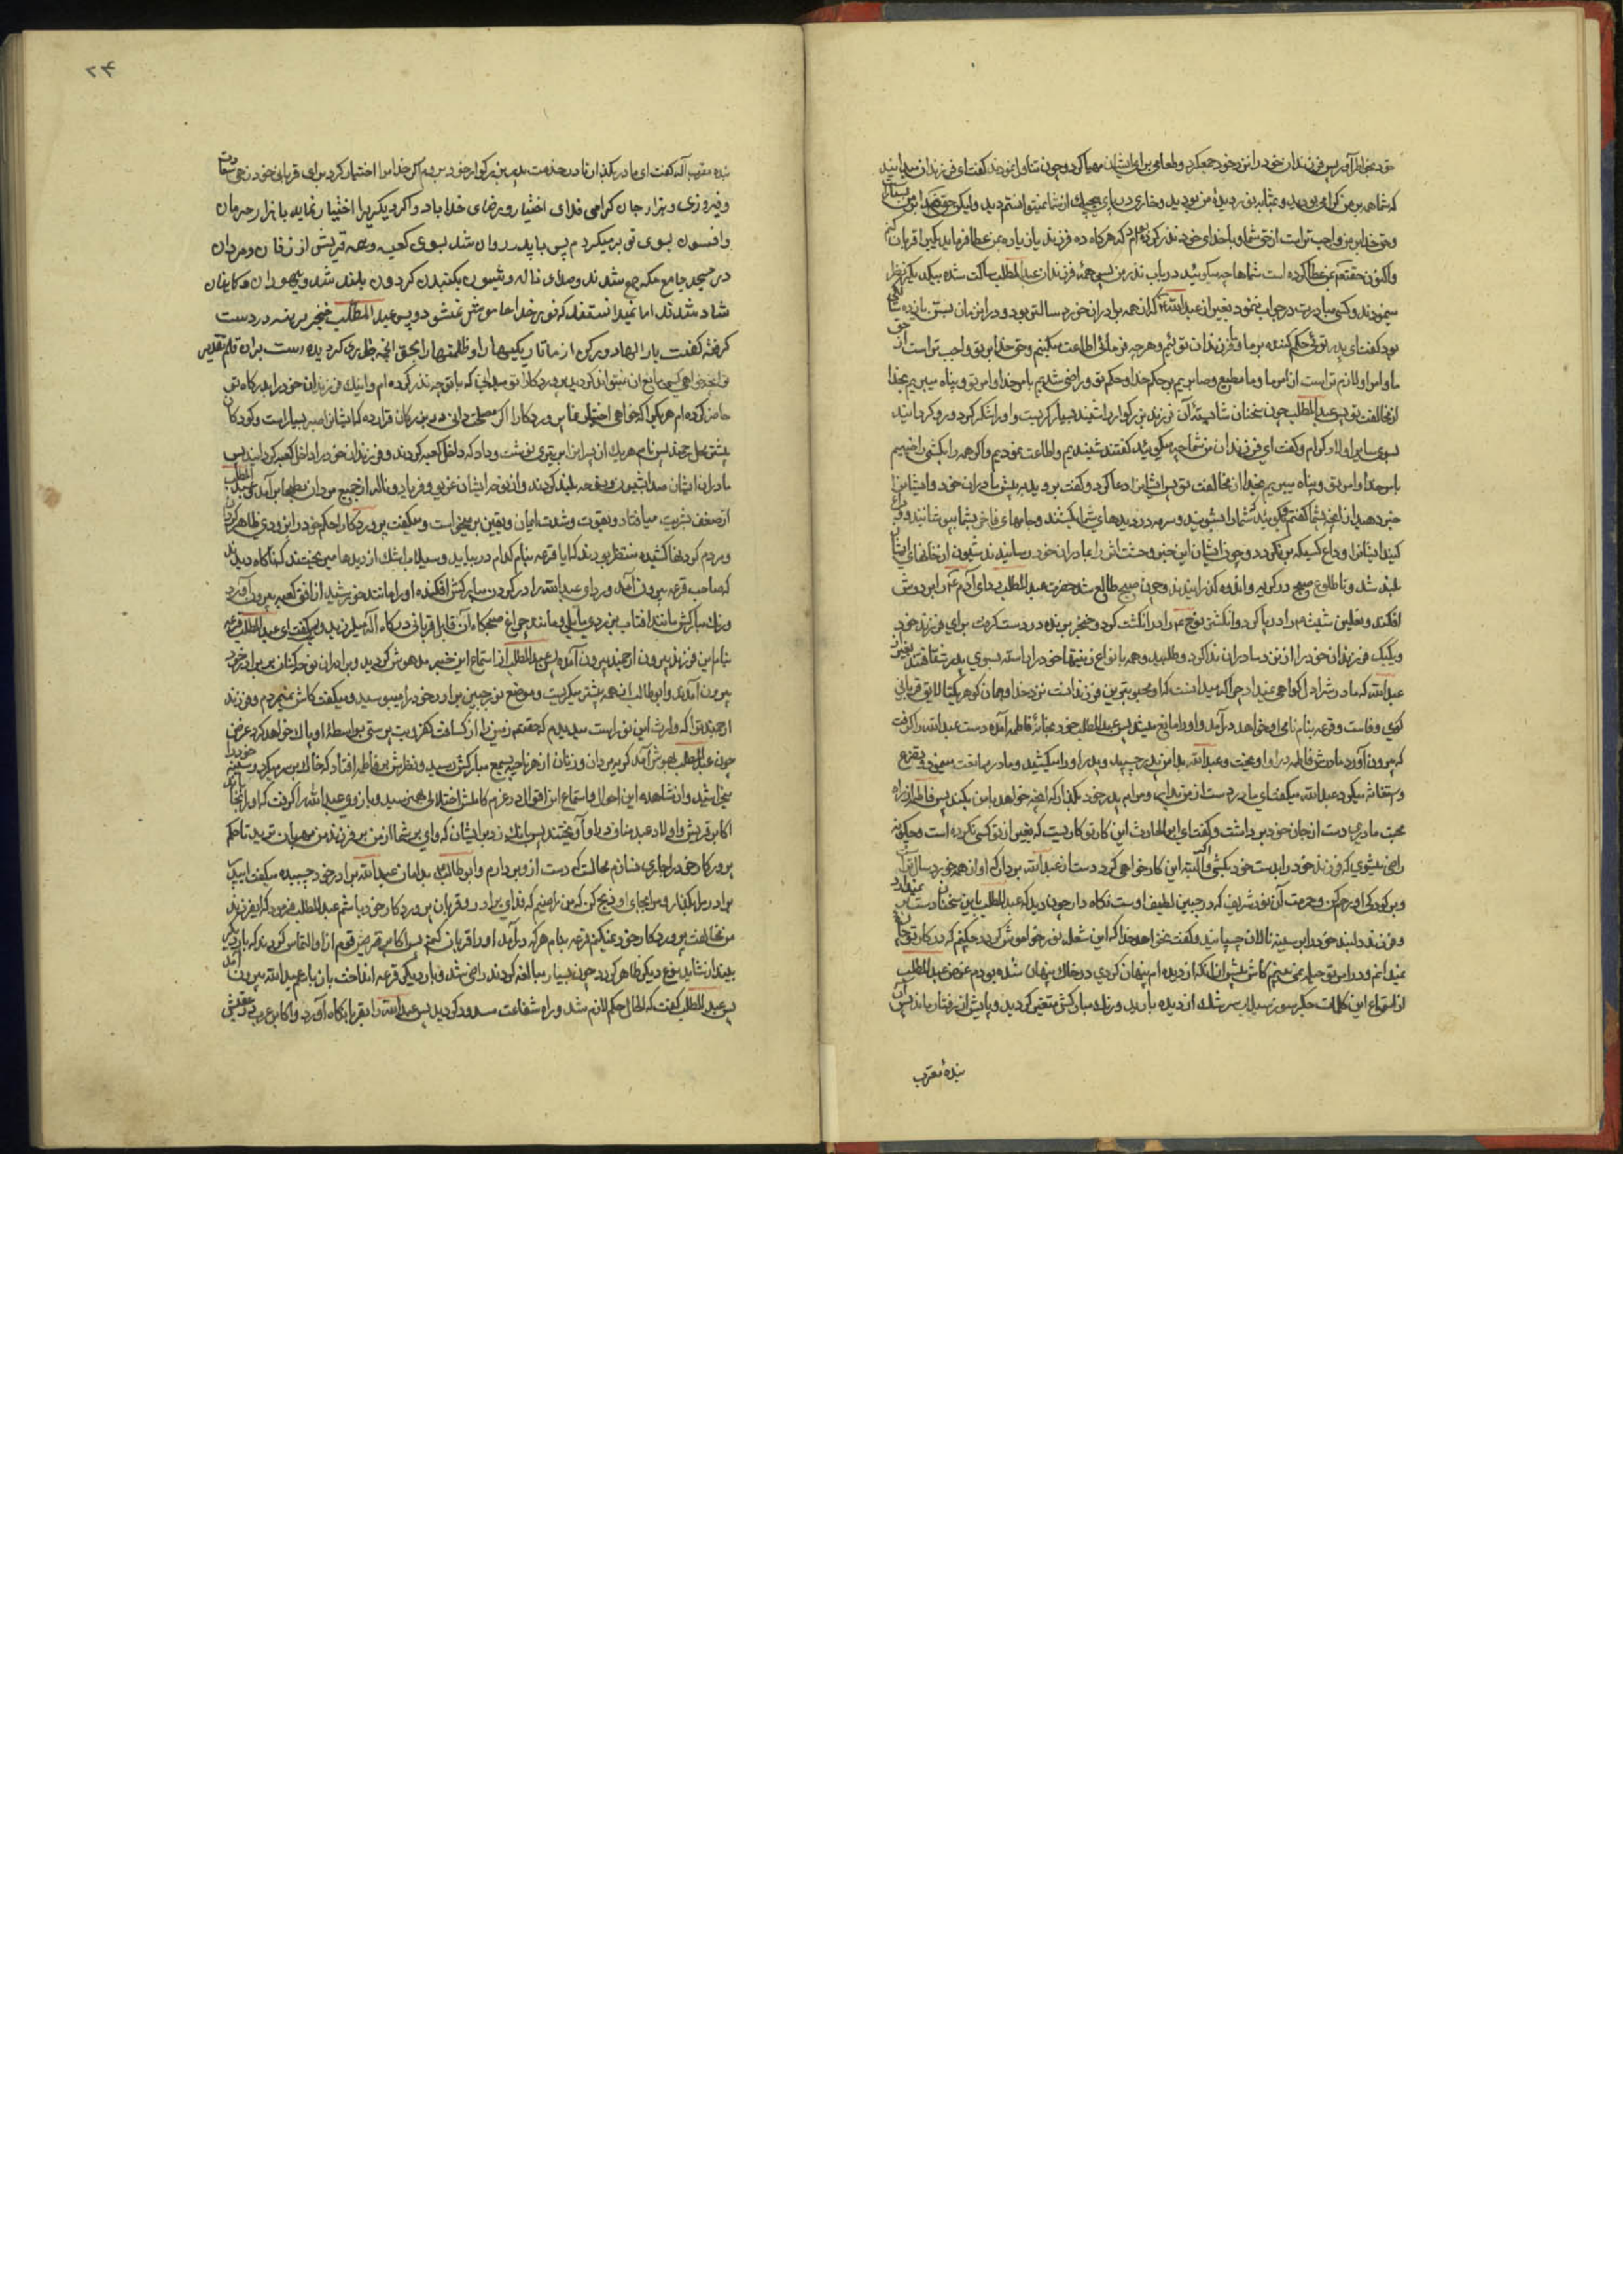 خود بخاطر آورد پس فرزندان خود را نزد خود جمع کرد و طعامی برای ایشان مهیا کرد و چون تناول نمودند گفت ای فرزندان میدانید
که شما همه بر من گرامی بودید و بمثابه نور دیدهٔ من بودید و خاری در پای هیچیک از شما نمیتوانستم دید ولیکن حق خدا بر من بسیار
و حق خدا بر من واجب تر است از حق شما و با خدای خود نذر کرده بودم که هرگاه ده فرزند یا زیاده بمن عطا فرماید یکی را قربان کنم
و اکنون حقتعالی بمن عطا کرده است شماها چه میگوئید در باب نذر من پس همهٔ فرزندان عبد المطلب ساکت شده بیکدیگر نظر
مینمودند و کسی مبادرت در جواب ننمود بغیر از عبد الله که از همه برادران خورد سالتر بود و در این زمان بسن یازده سالگی
بود گفت ای پدر توئی حکم کننده بر ما و ما فرزندان توئیم و هر چه فرمائی اطاعت میکنیم و حق خدا بر تو واجب تر است از حق
ما و امر او لازم تر است از امر ما و ما مطیع و صابریم بر حکم خدا و حکم تو و راضی شدیم بامر خدا و امر تو و پناه میبریم بخدا
از مخالفت تو پس عبد المطلب چون سخنان شایستهٔ آن فرزند بزرگوار را شنید بسیار گریست و او را شکر کرد و رو گردانید
بسوی سایر اولاد کرام و گفت ای فرزندان من شما چه میگوئید گفتند شنیدیم و اطاعت نمودیم و اگر همه را بکشی راضییم
بامر خدا و امر تو و پناه میبریم بخدا از مخالفت تو پس ایشانرا دعا کرد و گفت بروید بپیش مادران خود و ایشانرا
خبر دهید از آنچه بشما گفتم و بگوئید شما را بشویند و سرمه در دیدهای شما بکشند و جامهای فاخر بشما بپوشانند و وداع
کنید ایشانرا وداع کسیکه برنگردد و چون ایشان این خبر وحشت اثر را بمادران خود رسانیدند شیون از خانهای ایشان
بلند شد و تا طلوع صبح در گریه و اندوه گذرانیدند و چون صبح طالع شد حضرت عبد المطلب ردای آدم را بر دوش
افکند و نعلین شیث را در پا کرد و انگشتر نوح را در انگشت کرد و خنجر برنده در دست گرفت برای فرزند خود
و یکیک فرزندان خود را از نزد مادران ندا کرد و طلبید و همه بانواع زینتها خود را آراسته بسوی پدر شتافتند بغیر از
عبد الله که مادرش را دل گواهی نمیداد چرا که میدانست که او محبوبترین فرزند است نزد خدا و همان گوهر یکتا لایق قربانی
کوی وفاست و قرعه بنام نامی او خواهد درآمد و او را مانع میشد پس عبد المطلب خود بخانهٔ فاطمه آمده دست عبد الله را گرفت
که بیرون آورد مادرش فاطمه در او آویخت و عبد الله بدامن پدر چسبید و پدر او را میکشید و مادر ممانعت مینمود و تضرع
و استغاثه میکرد و عبد الله میگفت ای مادر دست از من بدار و مرا بپدر خود بگذار که آنچه خواهد با من بکند پس فاطمه از راه
محبت مادری دست از جان خود برداشت و گفت ای ابو الحارث این کار تو کاریست که بغیر از تو کسی نکرده است و چگونه
راضی میشوی که فرزند خود را بدست خود بکشی و اگر البته این کار خواهی کرد دست از عبد الله بردار که او از همه خورد سال تر است
و بر کودکی او رحم کن و حرمت آن نور شریف که در جبین لطیف اوست نگاه دار چون دید که عبد المطلب باین سخنان دست بر نمیدارد
و فرزند دلبند خود را بر سینه نالان چسپانید و گفت نخواهد خدا که این شعله نور خاموش گردد چکنم که در کار تو چاره
نمیدانم و در امر تو حیله نمیبینم کاش پیش از آنکه از دیده ام پنهان گردی در خاک پنهان شده بودم عبد المطلب
از استماع این کلمات جگر سوز سیلاب سرشک از دیده بارید و رنگ مبارکش متغیر گردید و پایش از رفتار ماند پس آن
بندهٔ مقرب
۲۴
بنده مقرب اله گفت ای مادر بگذار تا در خدمت پدر بزرگوار خود بروم اگر خدا مرا اختیار کرد برای قربانی خود زهی سعادت
و فیروزی و هزار جان گرامی فدای اختیار و رضای خدا باد و اگر دیگریرا اختیار نماید با هزار حرمان
و افسوس بسوی تو برمیگردم پس با پدر روان شد بسوی کعبه و همه قریش از زنان و مردان
در مسجد جامع مکه جمع شدند و صدای ناله و شیون بگنبد گردون بلند شد و یهودان و کاهنان
شاد شدند اما نمیدانستند که نور خدا خاموش نمیشود و پس عبد المطلب خنجر برهنه در دست
گرفته گفت بار الها دور کن از ما تاریکیها را و ظلمتها را بحق آنچه جاری گردیده است بران قلم تقدیر
حاضر کرده ام هر یک را که خواهی اختیار نما پروردگارا اگر مصلحت دانی در بزرگان قرار ده که ایشانرا صبر بیشتر است و کودکان
مادران ایشان صدا بشیون و نوحه بلند کردند و از نوحه ایشان غریو و فریاد و ناله از جمیع مردان بطحا برآمد عبد المطلب
از ضعف بشریت میافتاد و بقوت و شدت ایمان و یقین برمیخواست و میگفت پروردگارا حکم خود را بزودی ظاهر گردان
و مردم گردنها کشیده منتظر بودند که آیا قرعه بنام کدام در بیاید و سیلاب اشک از دیدها میریختند که ناگاه دیدند
که صاحب قرعه بیرون آمد و ردای عبد الله را در گردن مبارکش افکنده او را مانند خورشید از افق کعبه بیرون آورد
و رنگ مبارکش مانند آفتاب بزردی مایل و مانند چراغ صبحگاه آن قابل قربانی درگاه اله میلرزید و گفت ای عبد المطلب قرعه
بنام این فرزند بیرون آمده عبد المطلب از استماع این خبر مدهوش گردید و برادران نوحه کنان بر برادر خود
بیرون آمدند و ابو طالب از همه بیشتر میگریست و موضع نور جبین برادر خود را میبوسید و میگفت کاش نمیمردم و فرزند
ارجمند ترا که وارث این نور است میدیدم که حقتعالی زمین را از کثافت کفر و بت پرستی بواسطهٔ او پاک خواهد کرد
چون عبد المطلب بهوش آمد گریه مردان و زنان از هر ناحیه بسمع مبارکش رسید و نظرش بر فاطمه افتاد که خاک بر سر میکرد و سینه خود را
میخراشید و از مشاهده این احوال و استماع این اقوال در عزم کاملش اختلالی بهم نرسید و بازوی عبد الله را گرفت که او را بخواباند
اکابر قریش و اولاد عبد مناف در او آویختند پس بانگ زد بر ایشان که وای بر شما از من بر فرزند من مهربان ترید تا حکم
پروردگار خود را جاری نسازم محالست که دست ازو بردارم و ابو طالب بدامان عبد الله برادر خود چسبیده میگفت ای پدر
برادرم را بگذار و مرا بجای او ذبح کن که من راضیم که فدای برادر و قربان پروردگار خود باشم عبد المطلب فرمود که ای فرزند
من مخالفت پروردگار خود نمیکنم قرعه بنام هر که درآمد او را قربان کنم پس اکابر قریش قوم از او التماس کردند که بار دیگر
بیندازد شاید نوع دیگر ظاهر گردد چون بسیار مبالغه کردند راضی شد و بار دیگر قرعه انداخت باز بنام عبد الله بیرون آمد
پس عبد المطلب گفت که الحال حکم لازم شد و راه شفاعت مسدود گردید پس عبد الله را بقربانگاه آورد و اکابر عرب